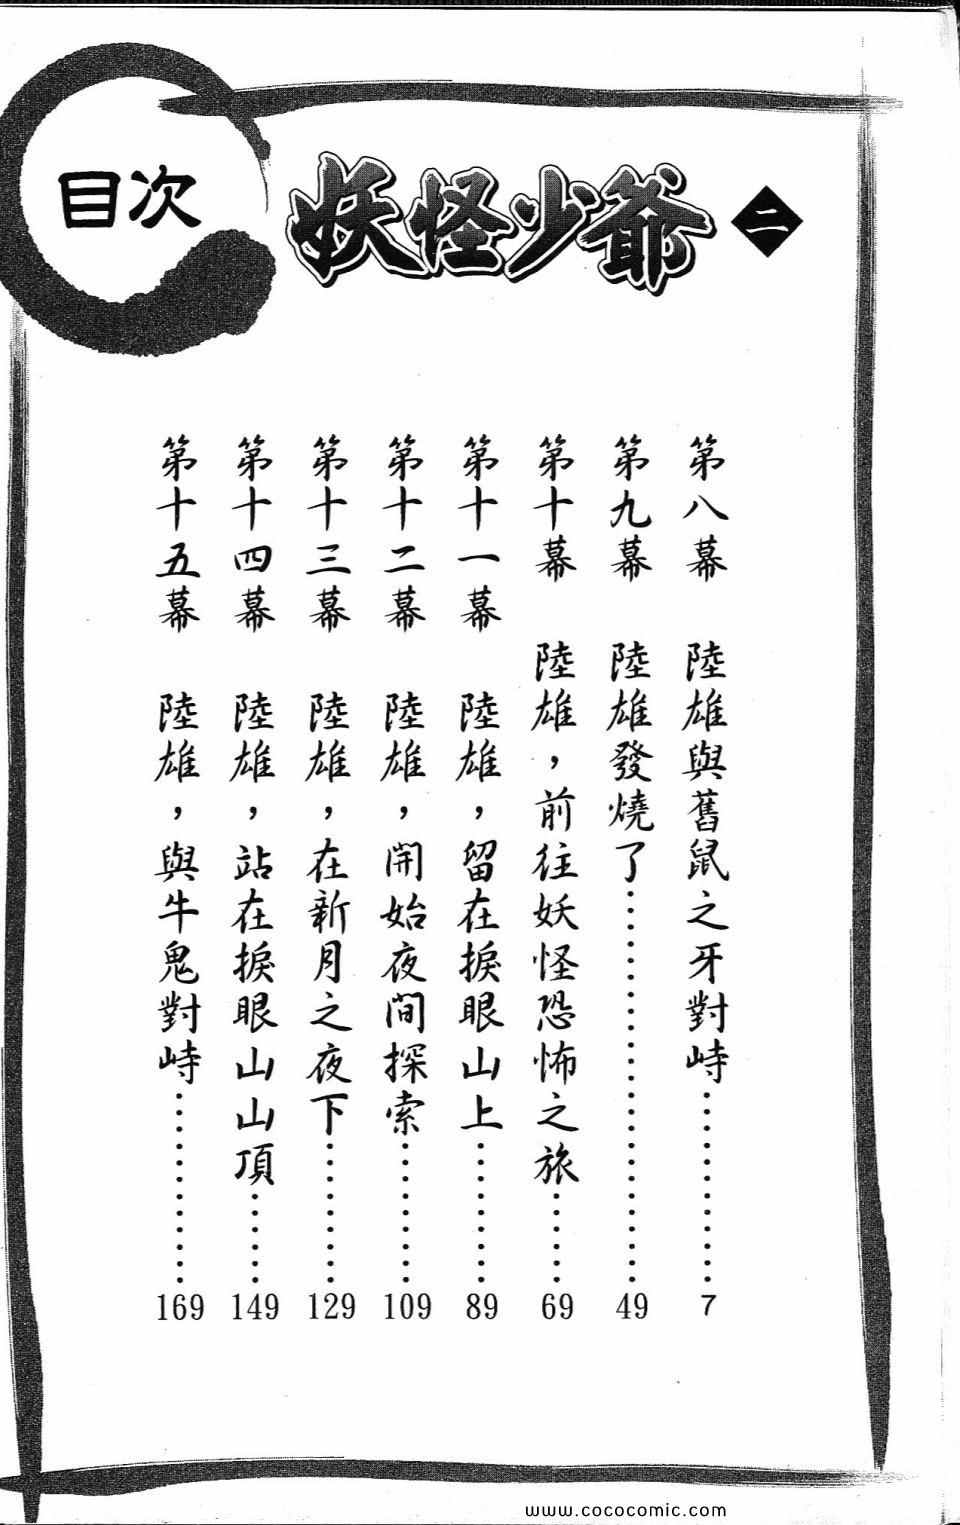 目次
妖怪少爺 二
第八幕 陸雄與舊鼠之牙對峙……………………7
第九幕 陸雄發燒了……………………………………49
第十幕 陸雄，前往妖怪恐怖之旅…………69
第十一幕 陸雄，留在捩眼山上………………89
第十二幕 陸雄，開始夜間探索………………109
第十三幕 陸雄，在新月之夜下………………129
第十四幕 陸雄，站在捩眼山山頂…………149
第十五幕 陸雄，與牛鬼對峙……………………169
www.cococomic.com